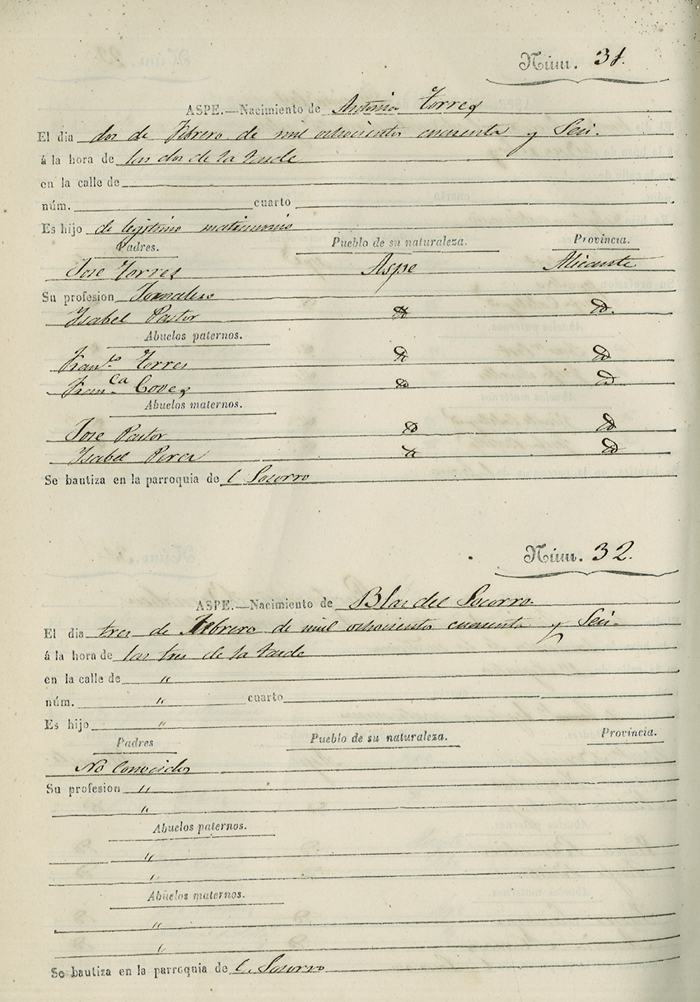 Núm. 31.
ASPE.—Nacimiento de Antonia Torres
El dia dos de Febrero de mil ochocientos cuarenta y Seis.
á la hora de las dos de la tarde
en la calle de
núm. cuarto
Es hijo de legitimo matrimonio
Padres. Pueblo de su naturaleza. Provincia.
Jose Torres Aspe Alicante
Su profesion Jornalero
Ysabel Pastor
Abuelos paternos.
Fran.co Torres
Fran.ca
Abuelos maternos.
Jose Pastor
Ysabel Perez
Se bautiza en la parroquia de el Socorro
Núm. 32.
ASPE.—Nacimiento de Blas del Socorro.
El dia tres de Febrero de mil ochocientos cuarenta y Seis.
á la hora de las tres de la tarde
en la calle de "
núm. " cuarto
Es hijo "
Padres Pueblo de su naturaleza. Provincia.
No Conocidos
Su profesion "
"
Abuelos paternos.
"
"
Abuelos maternos.
"
"
Se bautiza en la parroquia de el Socorro